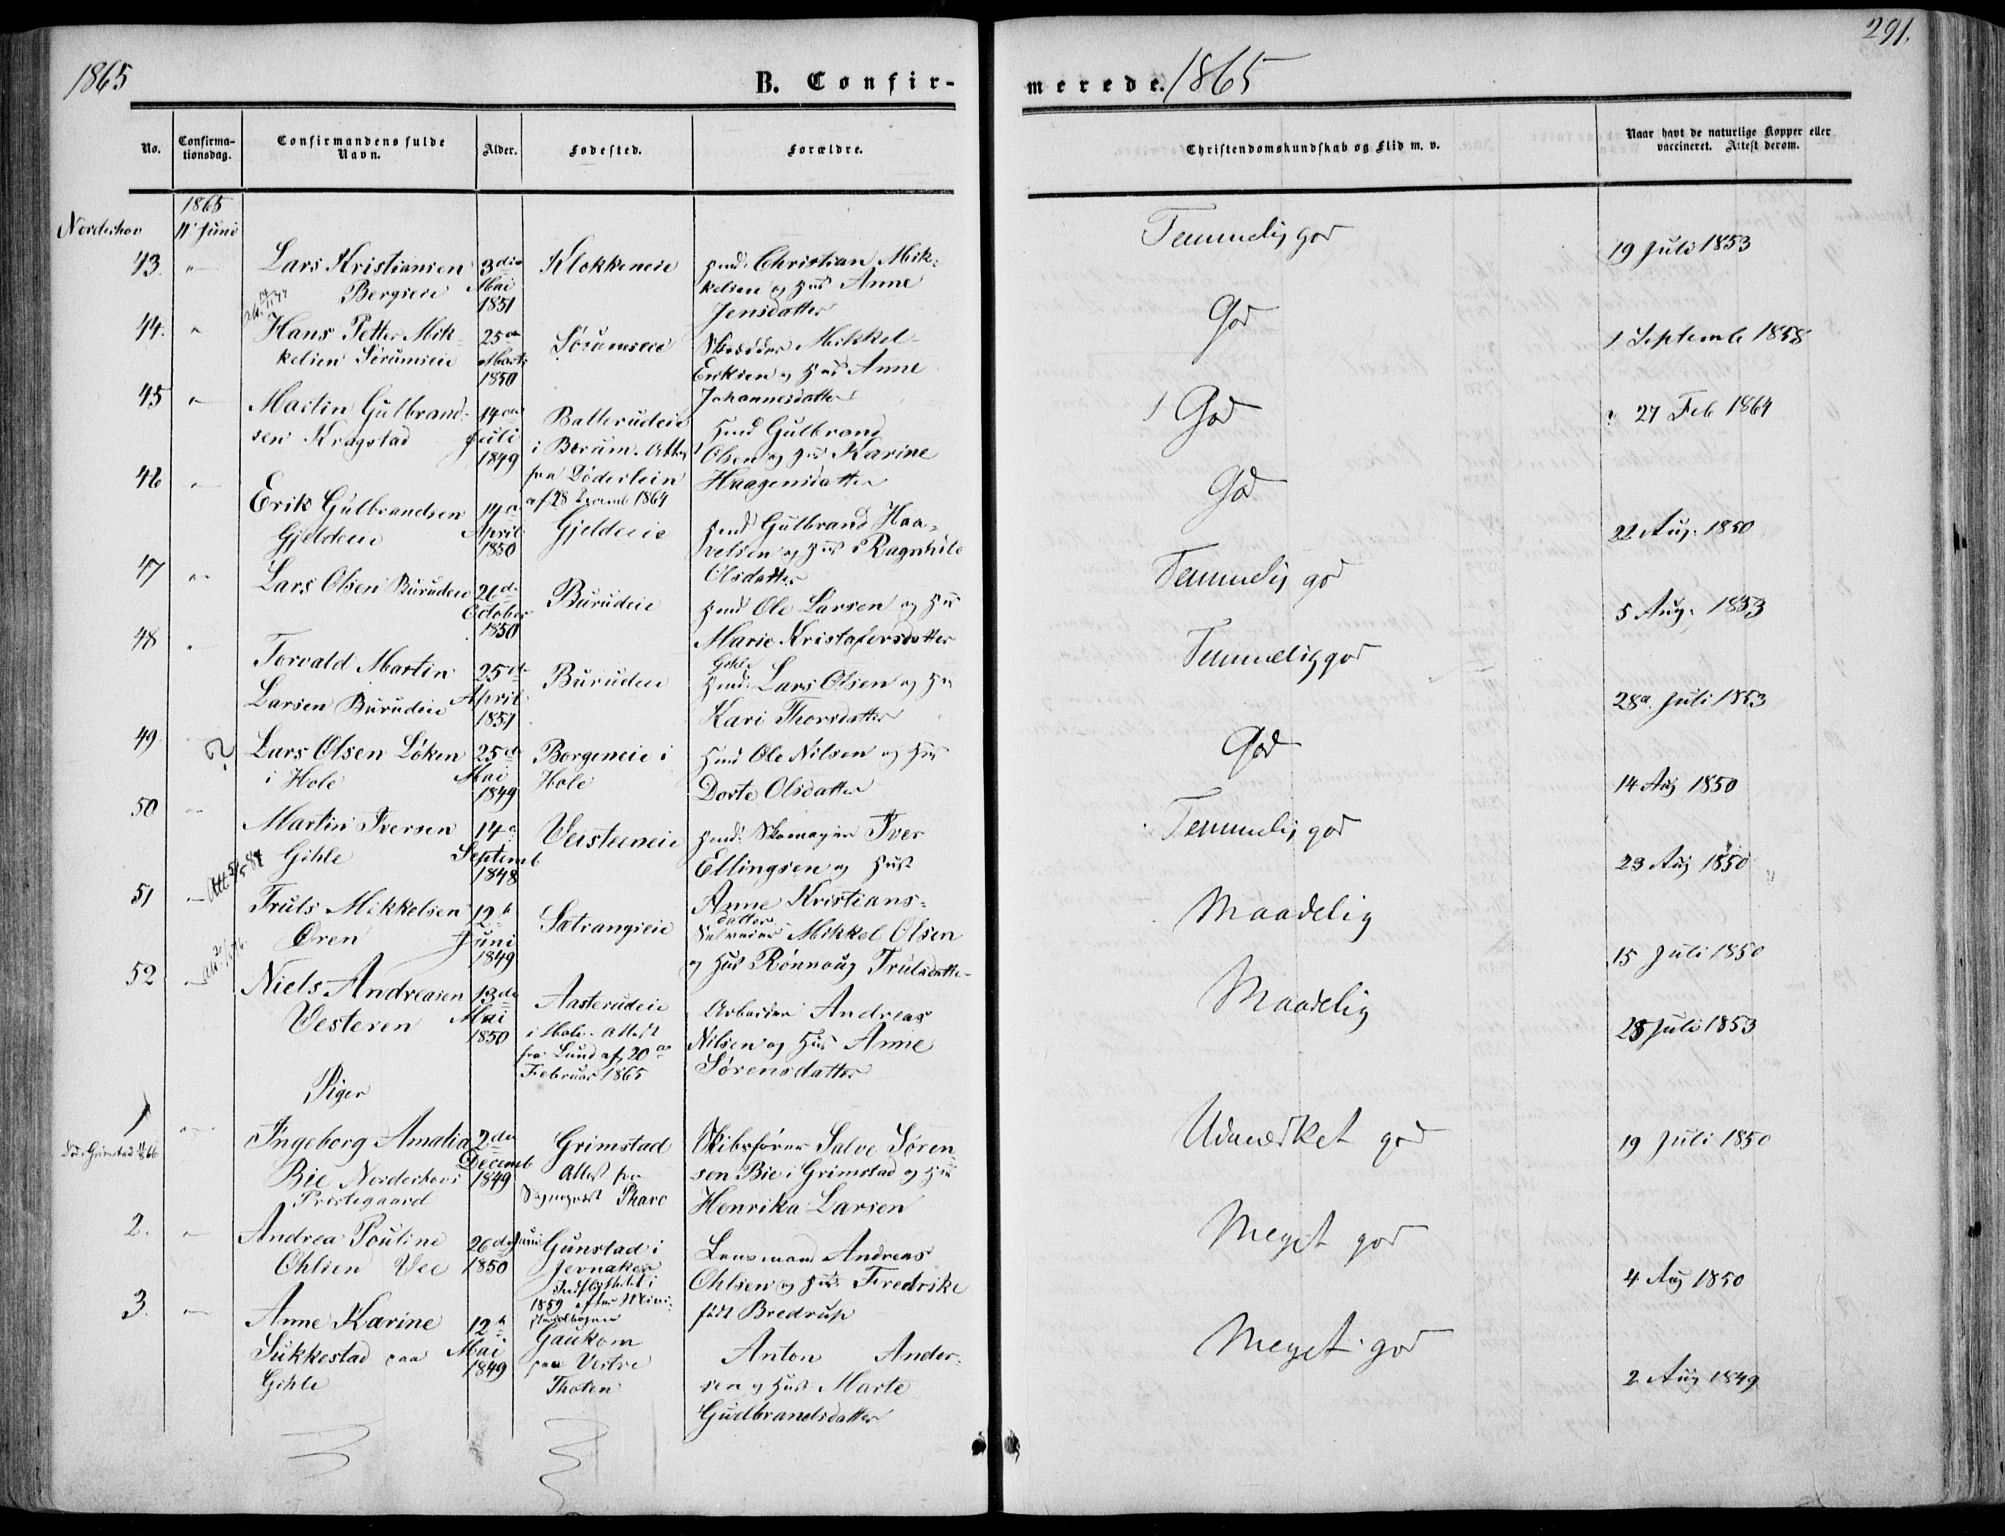 1865
B. Confir-
merede. 1865
291.
No.
Confirma-
tionsdag.
Confirmandens fulde
Navn.
Alder.
Fødested.
Forældre.
Christendomskundskab og Flid m. v.
Naar havt de naturlige Kopper eller
vaccineret. Attest derom.
1865
Norderhov 11 Juni
43. " Lars Kristiansen
Bergseie
3die
Mai
1851
Klokkeneie
Huusmd. Christian Mik-
kelsen og Hus Anne
Jensdatter
Temmelig god
19 Juli 1853
44. " Hans Petter Mik-
kelsen Sørumseie
25de
Marts
1850
Sørumseie
Skrædder Mikkel
Eriksen og Hus Anne
Johannesdatter
God
1 Septemb 1858
45 " Martin Gulbrand-
sen Kragstad
14de
Juli
1849
Ballerudeie
i Bærum. Attest
fra Døderlein
af 28 Decemb 1864
Hmd Gulbrand
Olsen og Hus Karine
Haagensdatter
God
27 Feb 1864
46 " Erik Gulbrandsen
Gjeldeie
14de
April
1850
Gjeldeeie
Hmd Gulbrand Haa-
velsen og Hus Ragnhild
Olsdatter
God
22 Aug. 1850
47 " Lars Olsen Burudeie
26de
October
1850
Burudeie
Hmd Ole Larsen og Hus
Marie Kristofersdatter
Temmelig god
5 Aug. 1853
48 " Torvald Martin
Larsen Burudeie
25de
April
1851
Burudeie
Hmd. Lars Olsen og Hus
Kari Thorsdatter
Temmelig god
28de Juli 1853
49. " Lars Olsen Løken
i Hole
25de
Mai
1849
Borgeneie i
Hole
Hmd Ole Nilsen og Hus
Dorte Olsdatter
God
14 Aug 1850
50 " Martin Iversen
Gihle
14de
Septemb
1848
Versteeneie
Hmd. Skomager Iver
Ellingsen og Hust
Anne Kristians-
datter
Temmelig god
23 Aug 1850
51 " Truls Mikkelsen
Øren
12te
Juni
1849
Sætrangseie
Selveier Mikkel Olsen
og Hus Rønnaug Trulsdatter
Maadelig
15 Juli 1850
52 " Niels Andreasen
Vesteren
13de
Mai
1850
Aasterudeie
i Hole. Attest
fra Lund af 20de
Februar 1865
Arbeider Andreas
Nilsen og Hus Anne
Sørensdatter
Maadelig
28 Juli 1853
Piger
1 " Ingeborg Amalia
Bie Norderhovs
Prestegaard
2den
Decemb
1849
Grimstad
Attest fra
Sogneprest Tharo
Skibsfører Salve Søren
sen Bie i Grimstad og Hus
Henrika Larsen
Udmærket god
19 Juli 1850
2. " Andrea Pouline
Ohlsen Vee
26de Juni
1850
Gunstad i
Jevnaker
Indflyttet i
1859 efter Mini-
sterialbogen
Lensmand Andreas
Ohlsen og Hus Fredrike
født Bredrup
Meget god
4 Aug 1850
3. " Anne Karine
Sukkestad paa
Gihle
12te
Mai
1849
Gaukom
paa Vestre
Thoten
Anton Ander-
sen og Hust Marte
Gudbrandsdatter
Meget god
2 Aug 1849